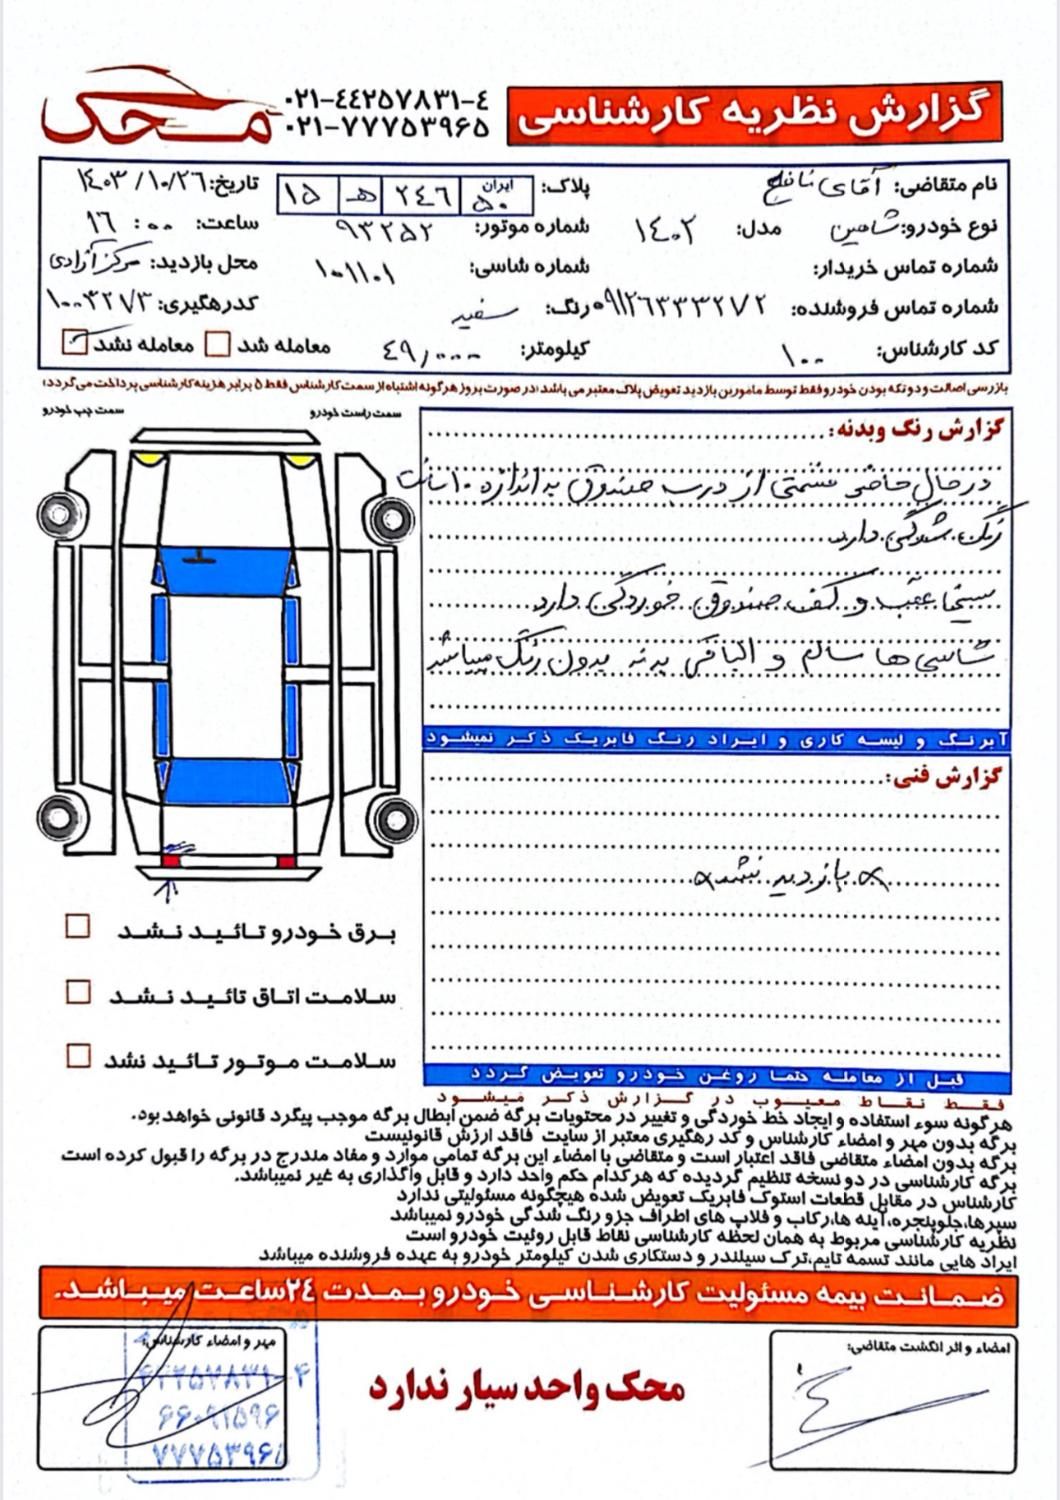 گزارش نظریه کارشناسی
۰۲۱-۴۴۲۵۷۸۳۱-۴
۰۲۱-۷۷۷۵۳۹۶۵
محک
نام متقاضی: آقای نافع
پلاک: ایران ۵۰ ۲۴۶ هـ ۱۵
تاریخ: ۱۴۰۳/۱۰/۲۶
نوع خودرو: شاهین مدل: ۱۴۰۲
شماره موتور: ۹۳۲۵۲
ساعت: ۱۶:۰۰
شماره تماس خریدار:
شماره شاسی: ۱۰۱۱۰۱
محل بازدید: مرکز آزادی
شماره تماس فروشنده: ۰۹۱۲۶۳۳۳۲۷۲
رنگ: سفید
کدرهگیری: ۱۰۰۴۲۷۳
کد کارشناس: ۱۰۰
کیلومتر: ۴۹,۰۰۰
معامله شد معامله نشد
بازرسی اصالت و دوتکه بودن خودرو فقط توسط مامورین بازدید تعویض پلاک معتبر می باشد (در صورت بروز هرگونه اشتباه از سمت کارشناس فقط ۵ برابر هزینه کارشناسی پرداخت می گردد)
سمت راست خودرو سمت چپ خودرو
گزارش رنگ وبدنه:
درحال حاضر قسمتی از درب صندوق به اندازه ۱۰ سانت
رنگ شدگی دارد
سینی عقب و کف صندوق خوردگی دارد
شاسی ها سالم و الباقی بدنه بدون رنگ میباشد
آبرنگ و لیسه کاری و ایراد رنگ فابریک ذکر نمیشود
گزارش فنی:
بازدید نشد
برق خودرو تائید نشد
سلامت اتاق تائید نشد
سلامت موتور تائید نشد
قبل از معامله حتما روغن خودرو تعویض گردد
فقط نقاط معیوب در گزارش ذکر میشود
هرگونه سوء استفاده و ایجاد خط خوردگی و تغییر در محتویات برگه ضمن ابطال برگه موجب پیگرد قانونی خواهد بود.
برگه بدون مهر و امضاء کارشناس و کد رهگیری معتبر از سایت فاقد ارزش قانونیست
برگه بدون امضاء متقاضی فاقد اعتبار است و متقاضی با امضاء این برگه تمامی موارد و مفاد مندرج در برگه را قبول کرده است
برگه کارشناسی در دو نسخه تنظیم گردیده که هرکدام حکم واحد دارد و قابل واگذاری به غیر نمیباشد.
کارشناس در مقابل قطعات استوک فابریک تعویض شده هیچگونه مسئولیتی ندارد
سپرها،جلوپنجره،آینه ها،رکاب و فلاپ های اطراف جزو رنگ شدگی خودرو نمیباشد
نظریه کارشناسی مربوط به همان لحظه کارشناسی نقاط قابل روئیت خودرو است
ایراد هایی مانند تسمه تایم،ترک سیلندر و دستکاری شدن کیلومتر خودرو به عهده فروشنده میباشد
ضمانت بیمه مسئولیت کارشناسی خودرو بمدت ۲۴ ساعت میباشد.
امضاء و اثر انگشت متقاضی:
محک واحد سیار ندارد
مهر و امضاء کارشناس:
۴۴۲۵۷۸۳۱-۴
۶۶۰۹۱۵۹۶
۷۷۷۵۳۹۶۵